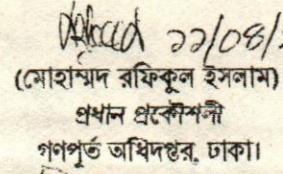 ২২/০৪/
(মোহাম্মদ রফিকুল ইসলাম)
প্রধান প্রকৌশলী
গণপূর্ত অধিদপ্তর, ঢাকা।